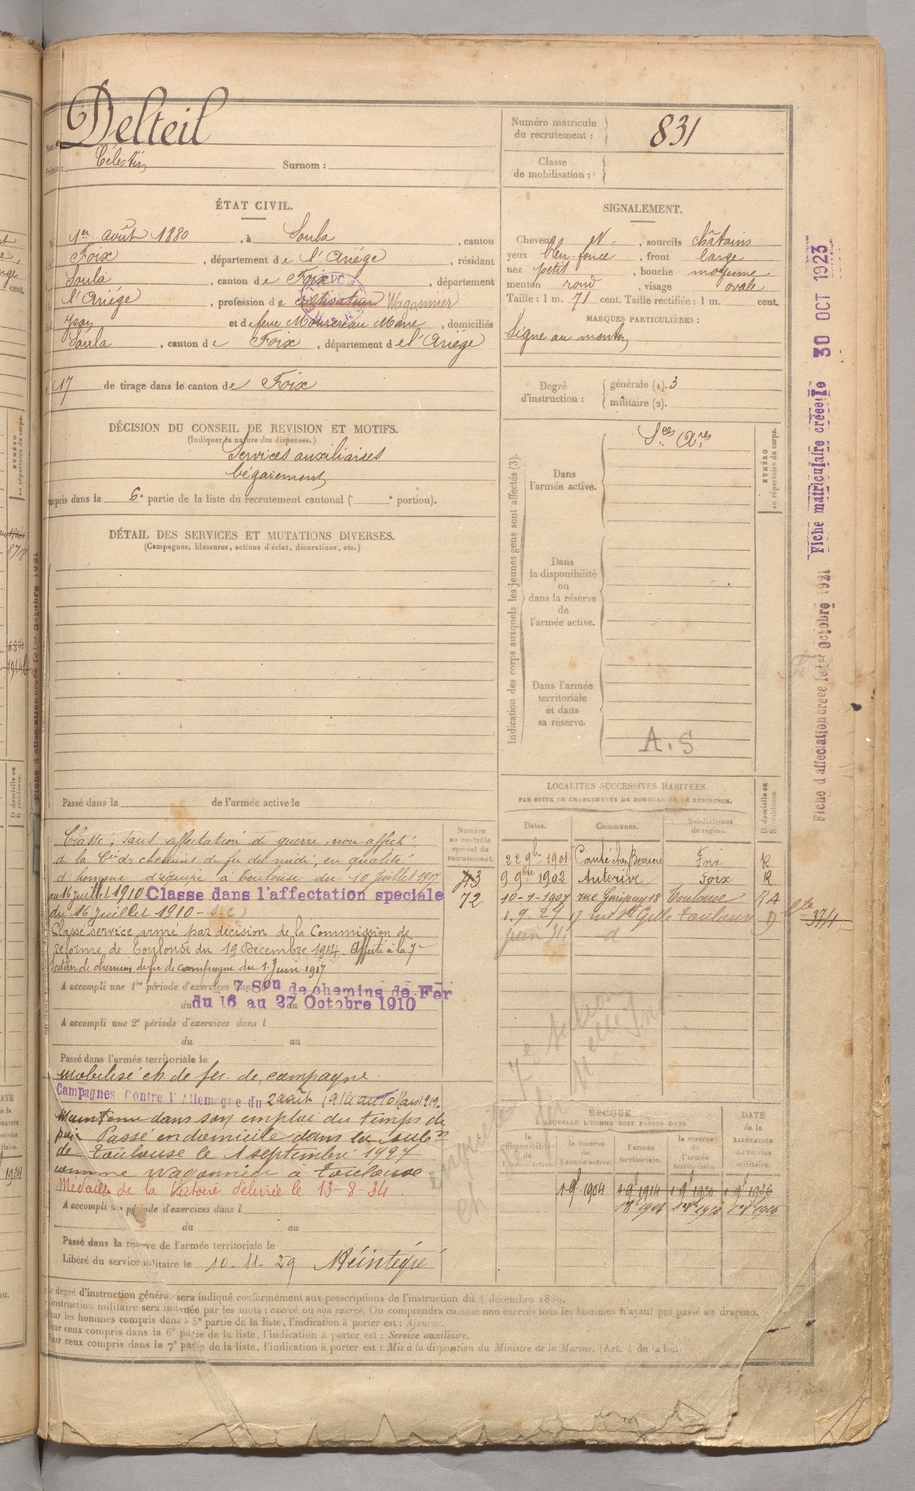 Delteil
Célestin
Surnom :
Numéro matricule
du recrutement :
831
Classe
de mobilisation :
ÉTAT CIVIL.
1er août 1880, à Soula, canton
Foix, département de l'Ariège, résidant
Soula, canton de Foix, département
l'Ariège, profession de cultivateur Wagonnier
Jean et de feue Marie, domiciliés
Soula, canton de Foix, département de l'Ariège
17 de tirage dans le canton de Foix
SIGNALEMENT.
Cheveux ct., sourcils châtains
yeux bleu foncé, front large
nez petit, bouche moyenne
menton rond, visage ovale
Taille : 1 m. 71 cent. Taille rectifiée : 1 m. cent.
MARQUES PARTICULIÈRES :
Signe au menton
Degré
d'instruction :
générale (1). 3
militaire (2).
DÉCISION DU CONSEIL DE REVISION ET MOTIFS.
(Indiquer la nature des dispenses.)
Services auxiliaires
bégaiement
compris dans la 6e partie de la liste du recrutement cantonal ( e portion).
DÉTAIL DES SERVICES ET MUTATIONS DIVERSES.
(Campagnes, blessures, actions d'éclat, décorations, etc.)
Indication des corps auxquels les jeunes gens sont affectés (3).
Dans
l'armée active.
Sces Ares
NUMÉRO
au répertoire du corps.
Dans
la disponibilité
ou
dans la réserve
de
l'armée active.
Dans l'armée
territoriale
et dans
sa réserve.
A.S
Passé dans la de l'armée active le
LOCALITÉS SUCCESSIVES HABITÉES
PAR SUITE DE CHANGEMENTS DE DOMICILE OU DE RÉSIDENCE.
Numéro
au contrôle
spécial du
recrutement.
43
72
Dates.
Communes.
Subdivisions
de région.
D domicile ou
R résidence.
22 9bre 1901 Foix R
9 9bre 1902 Auterive Foix R
10-7-1907 rue 18 Toulouse RA
1.9.27 17 rue Toulouse D
juin 34 d
374
Classé, sauf affectation de guerre non affecté,
à la Cie des chemins de fer du midi, en qualité
d'homme d'équipe à Toulouse du 10 juillet 1907
au 16 juillet 1910 Classé dans l'affectation spéciale
du 16 juillet 1910
Classé service armé par décision de la Commission de
réforme de Toulouse du 19 Décembre 1914. Affecté à la 7e
section de chemins de fer de campagne du 1 Juin 1917
A accompli une 1re période d'exercices
7 Son de chemins de Fer
du 16 au 27 Octobre 1910
A accompli une 2e période d'exercices dans l
du au
Passé dans l'armée territoriale le
mobilisé ch de fer de campagne
Campagnes contre l'Allemagne du 2 août 1914 au 10 Mars 1919
Maintenu dans son emploi du temps de
paix Passé en domicile dans la subdon
de Toulouse le 1 septembre 1927
comme wagonnier à Toulouse
Médaille de la Victoire délivrée le 13-8-34.
A accompli période d'exercices dans l
du au
Passé dans la réserve de l'armée territoriale le
Libéré du service militaire le 10-11-29 Réintégré
ÉPOQUE
À LAQUELLE L'HOMME DOIT PASSER DANS
DATE
de la
LIBÉRATION
du service
militaire.
la
disponibilité
la réserve
de
l'armée active.
l'armée
territoriale.
la réserve
de
l'armée
territoriale.
1.9.1904 1.9.1914 1.9.1920 1.9.1926
Le degré d'instruction générale sera indiqué conformément aux prescriptions de l'instruction du 4 décembre 1889.
L'instruction militaire sera indiquée par les mots : exercé ou non exercé. On comprendra comme non exercés tous les hommes n'ayant pas passé au drapeau.
Pour les hommes compris dans la 5e partie de la liste, l'indication à porter est : Ajourné.
Pour ceux compris dans la 6e partie de la liste, l'indication à porter est : Service auxiliaire.
Pour ceux compris dans la 7e partie de la liste, l'indication à porter est : Mis à la disposition du Ministre de la Marine.
Fiche d'affectation créée le 1er Octobre 1921 Fiche matriculaire créée le 30 OCT 1923